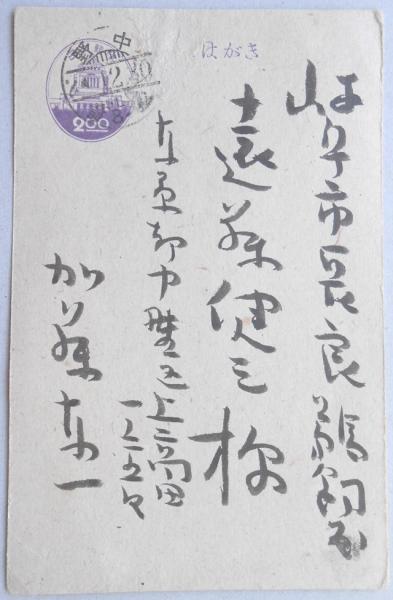 はがき
岐阜市長良鵜飼屋
遠藤健三様
東京都中野区上高田
一ノ二五〇
加藤東一
中野
2.00